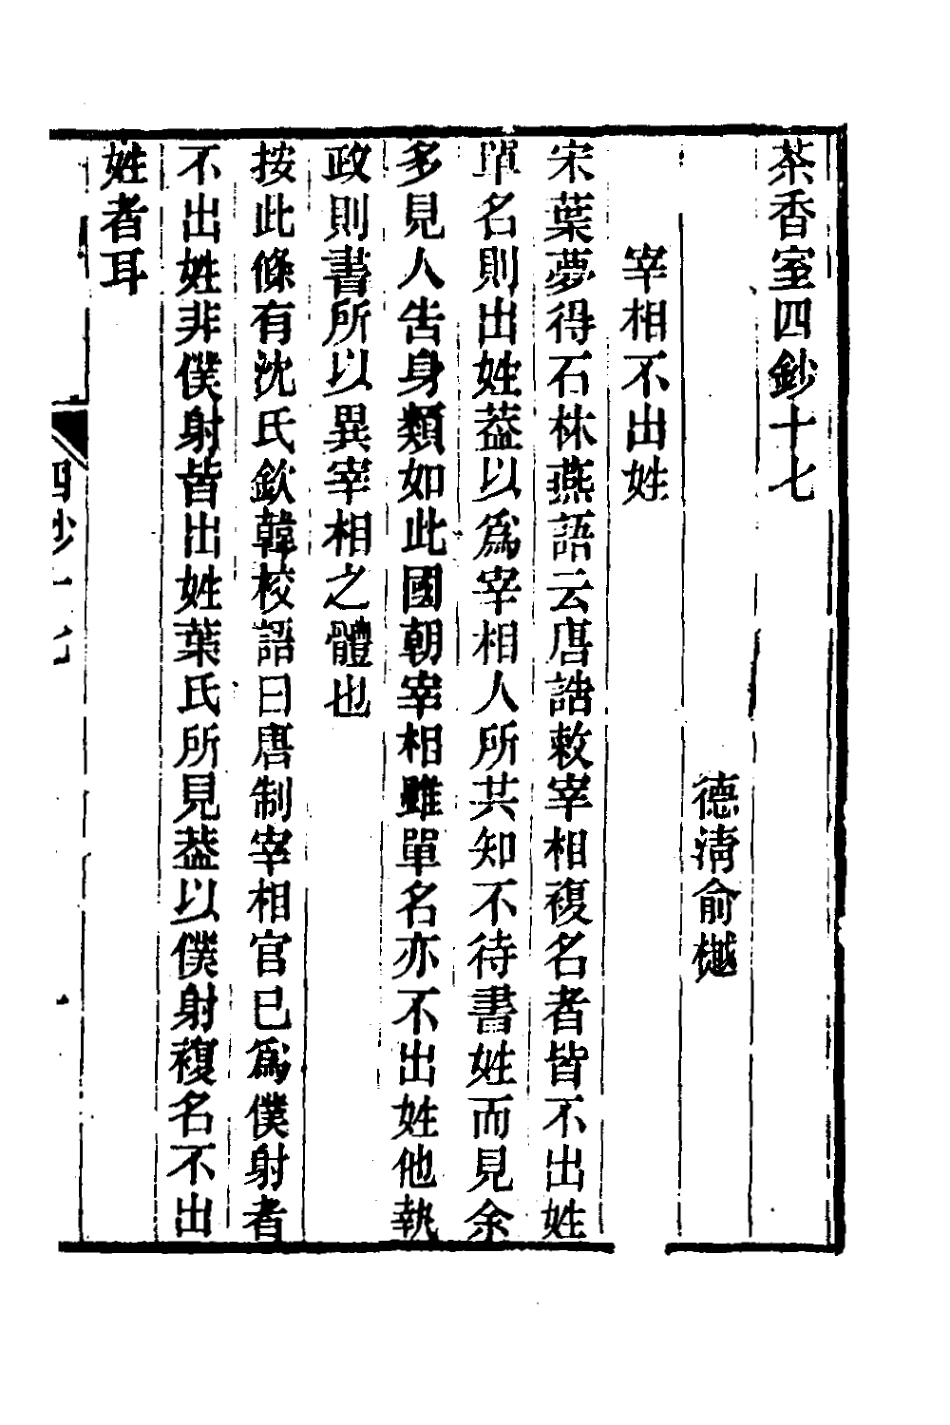 茶香室四鈔十七
德淸俞樾
宰相不出姓
宋葉夢得石林燕語云唐誥敕宰相複名者皆不出姓
單名則出姓葢以爲宰相人所共知不待書姓而見余
多見人告身類如此國朝宰相雖單名亦不出姓他執
政則書所以異宰相之體也
按此條有沈氏欽韓校語曰唐制宰相官已爲僕射者
不出姓非僕射皆出姓葉氏所見葢以僕射複名不出
姓者耳
四鈔十七